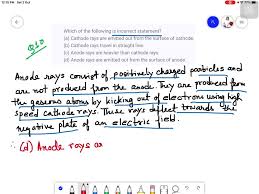 12:15 PM Sat 2 Oct
Which of the following is incorrect statement?
(a) Cathode rays are emitted out from the surface of cathode.
(b) Cathode rays travel in straight line.
(c) Anode rays are heavier than cathode rays.
(d) Anode rays are emitted out from the surface of anode.
Anode rays consist of positively charged particles and
are not produced from the anode. They are produced from
the gaseous atoms by kicking out of electrons using high
speed cathode rays. These rays deflect towards the
negative plate of an electric field.
∴ (d) Anode rays a